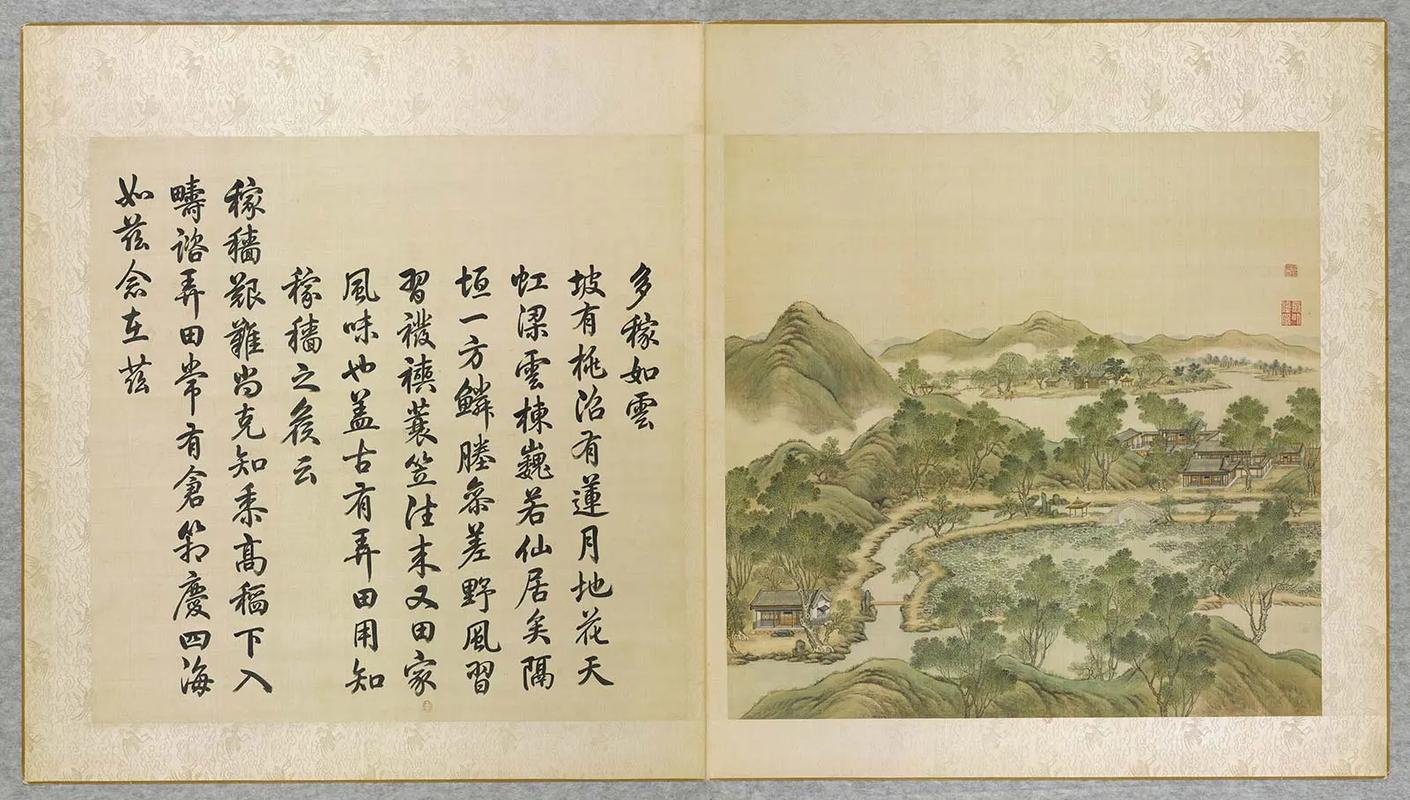 多稼如雲
坡有桃沼有蓮月地花天
虹梁雲棟巍若仙居矣隔
垣一方鱗塍叅差野風習
習襏襫蓑笠往來又田家
風味也盖古有弄田用知
稼穡之候云
稼穡艱難尚克知黍高稻下入
疇諮弄田常有倉箱慶四海
如茲念在茲